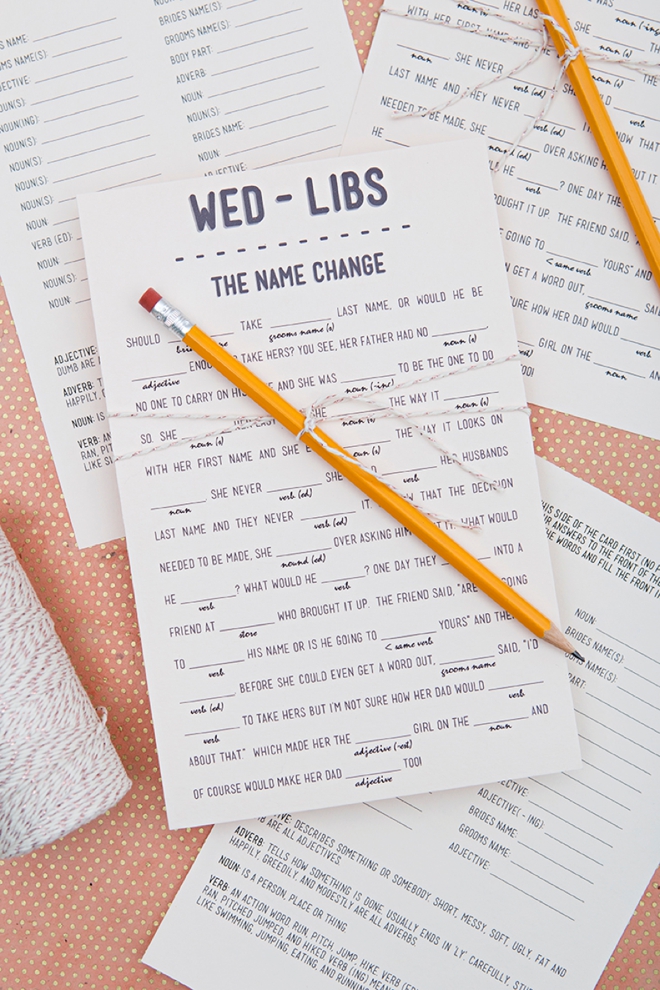 BRIDES NAME:
GROOMS NAME(S):
BODY PART:
ADVERB:
NOUN:
NOUN(S):
NOUN(S):
BRIDES NAME:
NOUN:
NAME:
GROOMS NAME(S):
ADJECTIVE:
NOUN(S):
NOUN(ING):
NOUN(S):
NOUN(S):
NOUN(S):
NOUN:
VERB (ED):
NOUN:
NOUN(S):
NOUN:
ADJECTIVE:
DUMB ARE
ADVERB:
HAPPILY,
NOUN: IS
VERB: AN
RAN, PIT
LIKE SW
WITH HER FIRST NAME AND
noun (s)
noun (-ing)
noun (s)
SHE NEVER
verb (ed)
HER
LAST NAME AND THEY NEVER
verb (ed)
NEEDED TO BE MADE, SHE
noun (ed)
OVER ASKING
HE
verb
? ONE DAY THE
BROUGHT IT UP. THE FRIEND SAID,
GOING TO
< same verb
YOURS" AND
GET A WORD OUT,
grooms name (s)
SURE HOW HER DAD WOULD
verb
GIRL ON THE
noun
WED - LIBS
THE NAME CHANGE
SHOULD ____ TAKE ____ LAST NAME, OR WOULD HE BE
grooms name (s)
____ ENOUGH TO TAKE HERS? YOU SEE, HER FATHER HAD NO ____,
adjective noun (s)
NO ONE TO CARRY ON HIS ____ AND SHE WAS ____ TO BE THE ONE TO DO
noun (-ing)
SO. SHE ____ HER LAST ____ THE WAY IT ____
noun (s) noun (s) noun (s)
WITH HER FIRST NAME AND SHE ____ THE WAY IT LOOKS ON
noun (s)
____ SHE NEVER ____ SHE ____ HER HUSBANDS
noun verb (ed) verb (ed)
LAST NAME AND THEY NEVER ____ IT. NOW THAT THE DECISION
verb (ed)
NEEDED TO BE MADE, SHE ____ OVER ASKING HIM ____ IT. WHAT WOULD
nound (ed)
HE ____? WHAT WOULD HE ____? ONE DAY THEY ____ INTO A
verb verb
FRIEND AT ____ WHO BROUGHT IT UP. THE FRIEND SAID, "ARE ____ GOING
store
TO ____ HIS NAME OR IS HE GOING TO ____ YOURS" AND THEN
verb < same verb
____ BEFORE SHE COULD EVEN GET A WORD OUT, ____ SAID, "I'D
verb (ed) grooms name
____ TO TAKE HERS BUT I'M NOT SURE HOW HER DAD WOULD ____
verb verb
ABOUT THAT." WHICH MADE HER THE ____ GIRL ON THE ____ AND
adjective (-est) noun
OF COURSE WOULD MAKE HER DAD ____ TOO!
adjective
THIS SIDE OF THE CARD FIRST (NO
ANSWERS TO THE FRONT OF
THE WORDS AND FILL THE FRONT
NOUN:
BRIDES NAME(S):
NAME(S):
PART:
ADJECTIVE(-ING):
BRIDES NAME:
GROOMS NAME:
ADJECTIVE:
ADJECTIVE: DESCRIBES SOMETHING OR SOMEBODY. SHORT, MESSY, SOFT, UGLY, FAT AND
DUMB ARE ALL ADJECTIVES.
ADVERB: TELLS HOW SOMETHING IS DONE, USUALLY ENDS IN 'LY'. CAREFULLY,
HAPPILY, GREEDILY, AND MODESTLY ARE ALL ADVERBS.
NOUN: IS A PERSON, PLACE OR THING.
VERB: AN ACTION WORD. RUN, PITCH, JUMP, HIKE. VERB (ED)
RAN, PITCHED, JUMPED, AND HIKED. VERB (ING)
LIKE SWIMMING, JUMPING, EATING, AND RUNNING